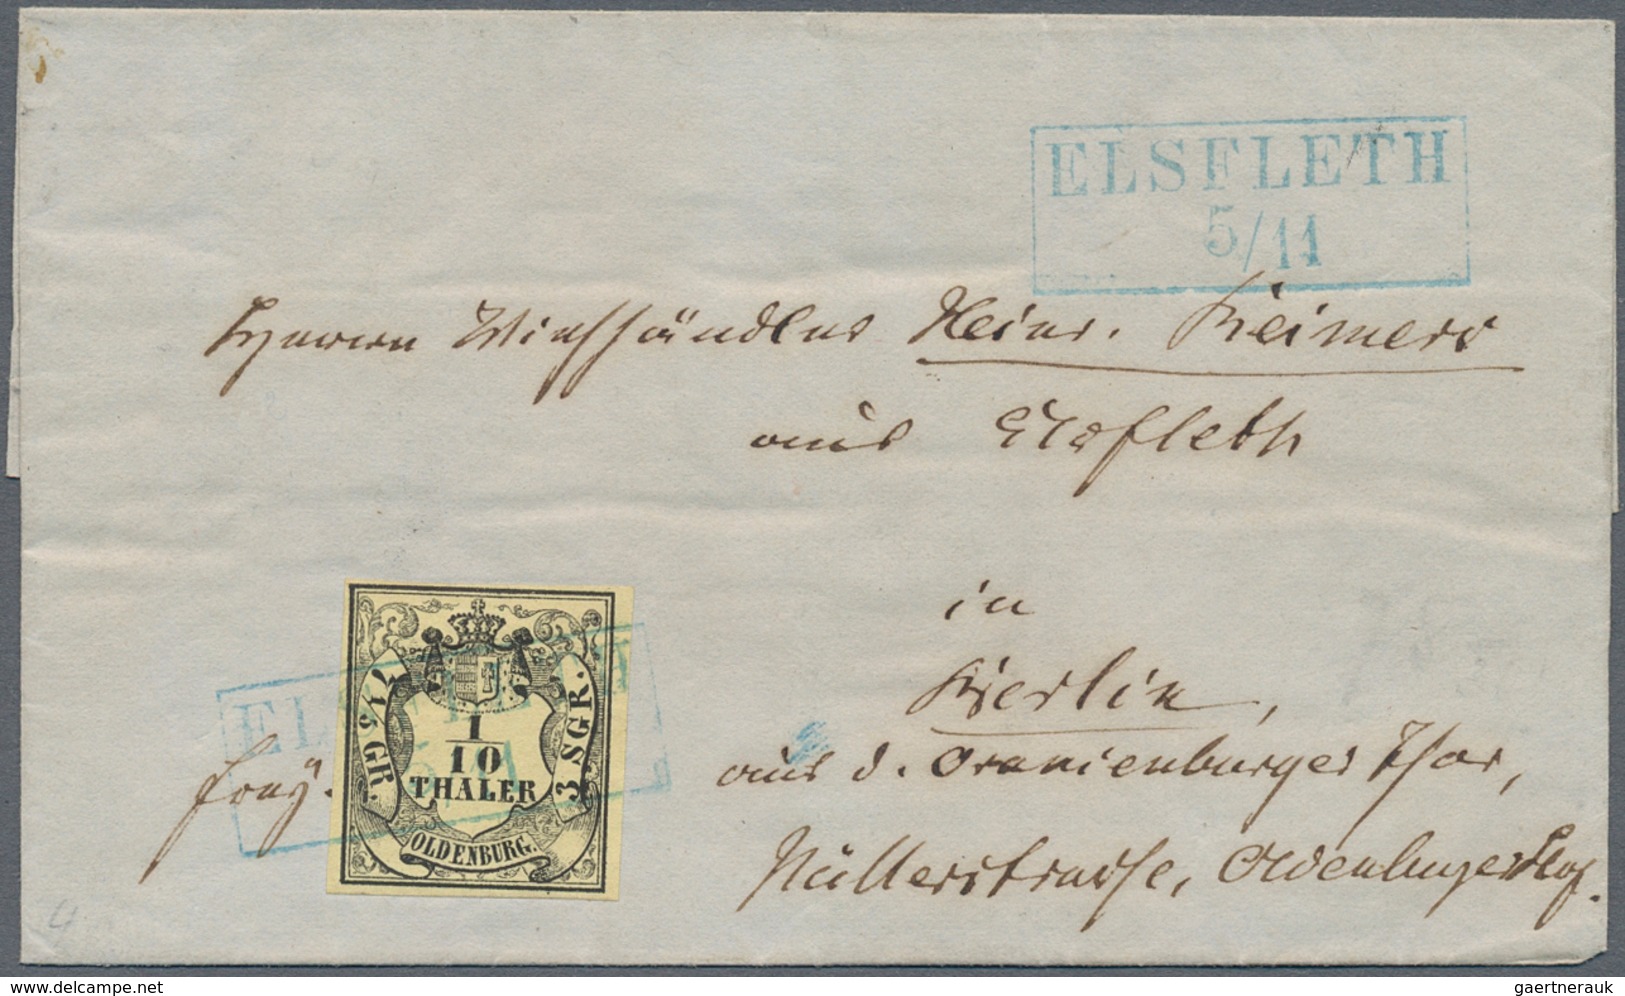 ELSFLETH
5/11
Herrn Viehhändler Heinr. Reimers
aus Elsfleth
in
Berlin,
aus d. Oranienburger Thor,
Müllerstrasse, Oldenburger Hof.
franz.
ELSFLETH
7 1/5 GR.
1/10
THALER
3 SGR.
OLDENBURG.
4
delcampe.net
gaertnerauk